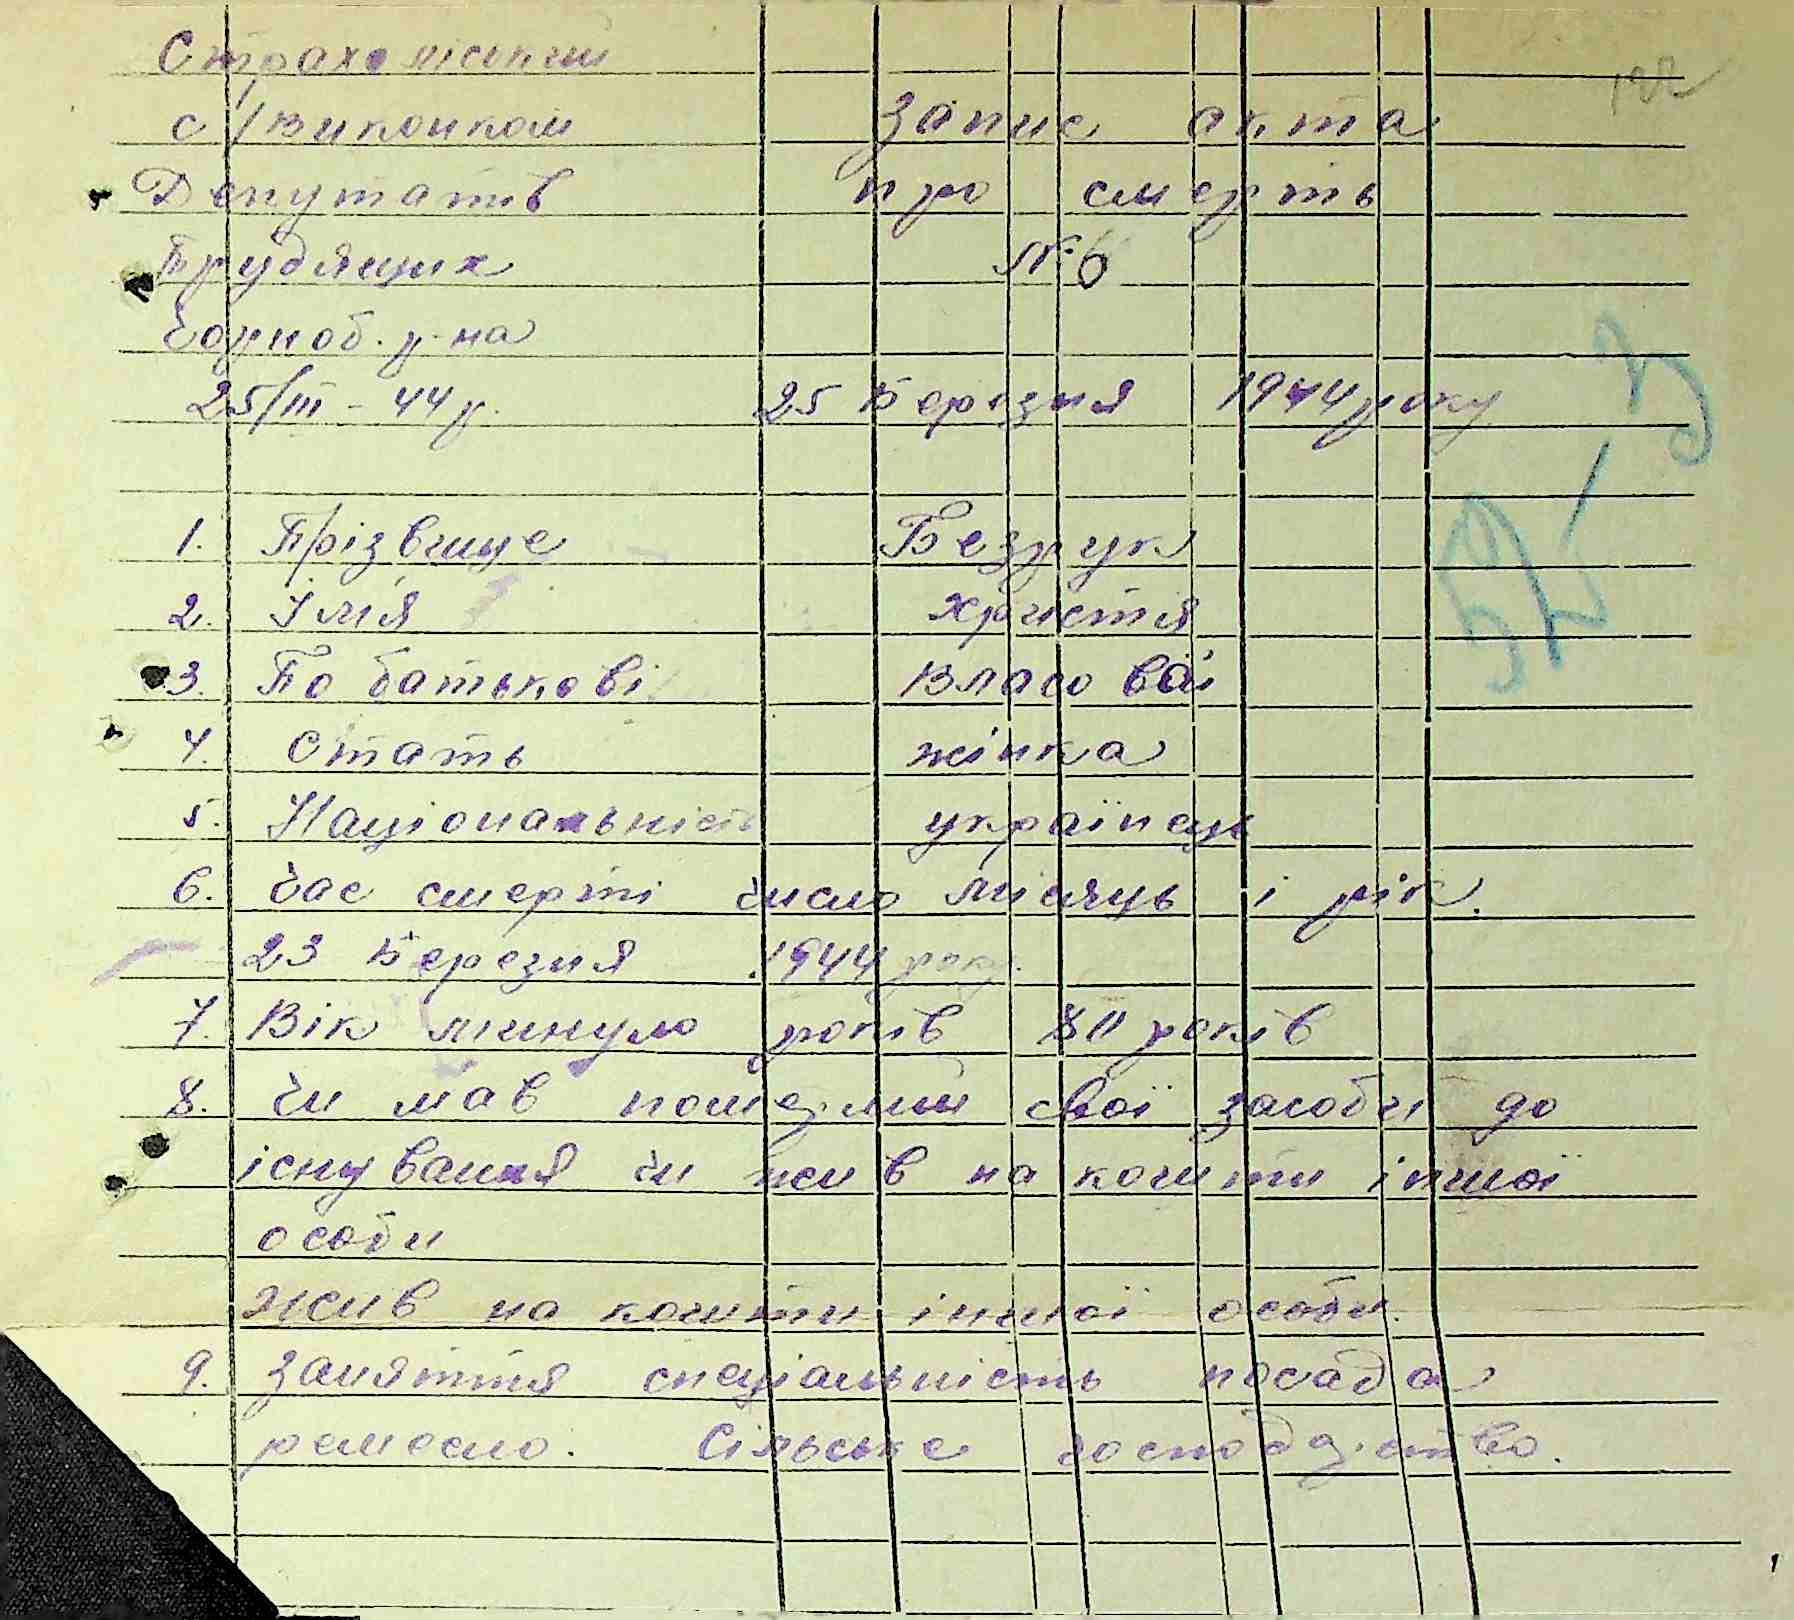 Страхоліський
с/виконком Запис акта
Депутатів про смерть
Трудящих № 6
Чорноб. р-на
25/III - 44 р. 25 Березня 1944 року
1. Прізвище Безрук
2. Імя Христія
3. По батькові Власовві
4. Стать жінка
5. Національність українець
6. Час смерті число місяць і рік.
23 Березня 1944 року.
7. Вік минуло років 80 років
8. Чи мав померлий свої засоби до
існування чи жив на кошти іншої
особи
жив на кошти іншої особи.
9. Заняття спеціальність посада
ремесло. Сільське господарство.